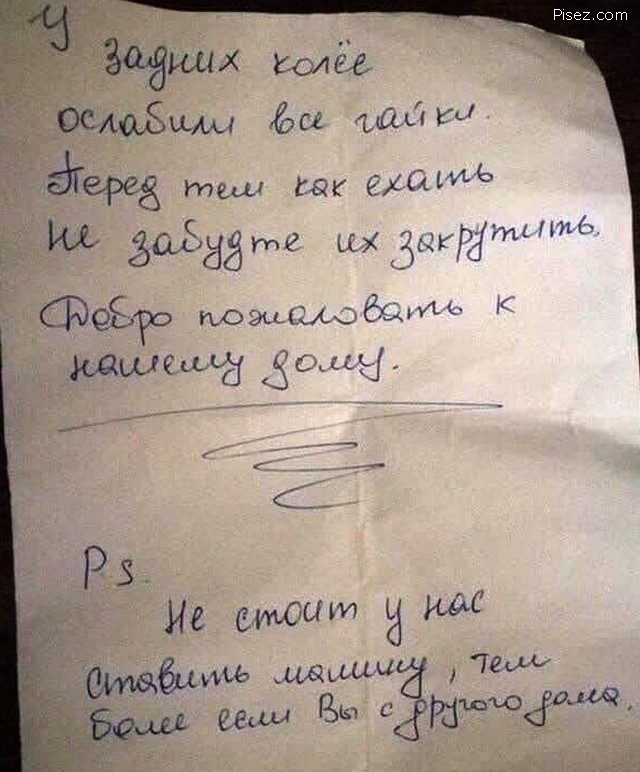 Pisez.com
У
задних колёс
ослабили все гайки.
Перед тем как ехать
Не забудте их закрутить.
Добро пожаловать к
нашему дому.
P s.
Не стоит у нас
ставить машину, тем
более если Вы с другого дома.